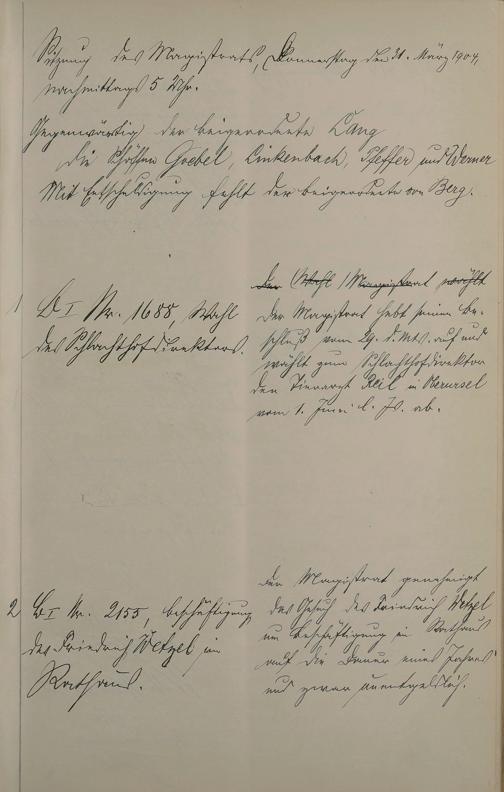 Sitzung des Magistrats, Donnerstag den 31. März 1904,
nachmittags 5 Uhr.
Gegenwärtig der Beigeordnete Lang
die Schöffen Goebel, Linkenbach, Pfeffer und Werner
Mit Entschuldigung fehlt der Beigeordnete von Berg.
1 B I Nr. 1688, Wahl
des Schlachthofdirektors.
Der Wahl Magistrat wählt
Der Magistrat hebt seinen Be-
schluß vom 29. d. Mts. auf und
wählt zum Schlachthofdirektor
den Tierarzt Reil in Oberursel
vom 1. Juni l. Js. ab.
2 B I Nr. 2155, Beschäftigung
des Friedrich Wetzel im
Rathaus.
Der Magistrat genehmigt
das Gesuch des Friedrich Wetzel
um Beschäftigung im Rathaus
auf die Dauer eines Jahres
und zwar unentgeltlich.